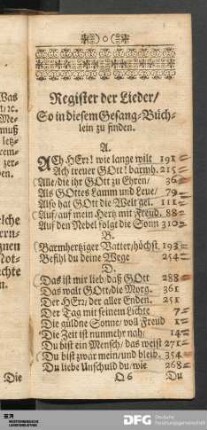 Register der Lieder/
So in diesem Gesang-Büch-
lein zu finden.
A.
ACh HErr! wie lange wilt 191
Ach treuer GOtt! barmh. 215
Alle/die ihr GOtt zu Ehren 36
Als GOttes Lamm und Leue/ 79
Also hat GOtt die Welt gel. 111
Auf/auf mein Hertz mit Freud. 88
Auf den Nebel folgt die Sonn 310
B.
Barmhertziger Vatter/höchst. 193
Befihl du deine Wege 254
D.
Das ist mir lieb/daß GOtt 288
Das walt GOtt/die Morg. 361
Der HErr/der aller Enden. 251
Der Tag mit seinem Lichte 7
Die güldne Sonne/voll Freud 1
Die Zeit ist nunmehr nah/ 14
Du bist ein Mensch/das weist 271
Du bist zwar mein/und bleib. 354
Du liebe Unschuld du/wie 268
Q 6 Du
Was
Me-
muß
letz-
zer-
ben.
elche
rrn-
Not-
echte
en.
Die
DFG Deutsche Forschungsgemeinschaft